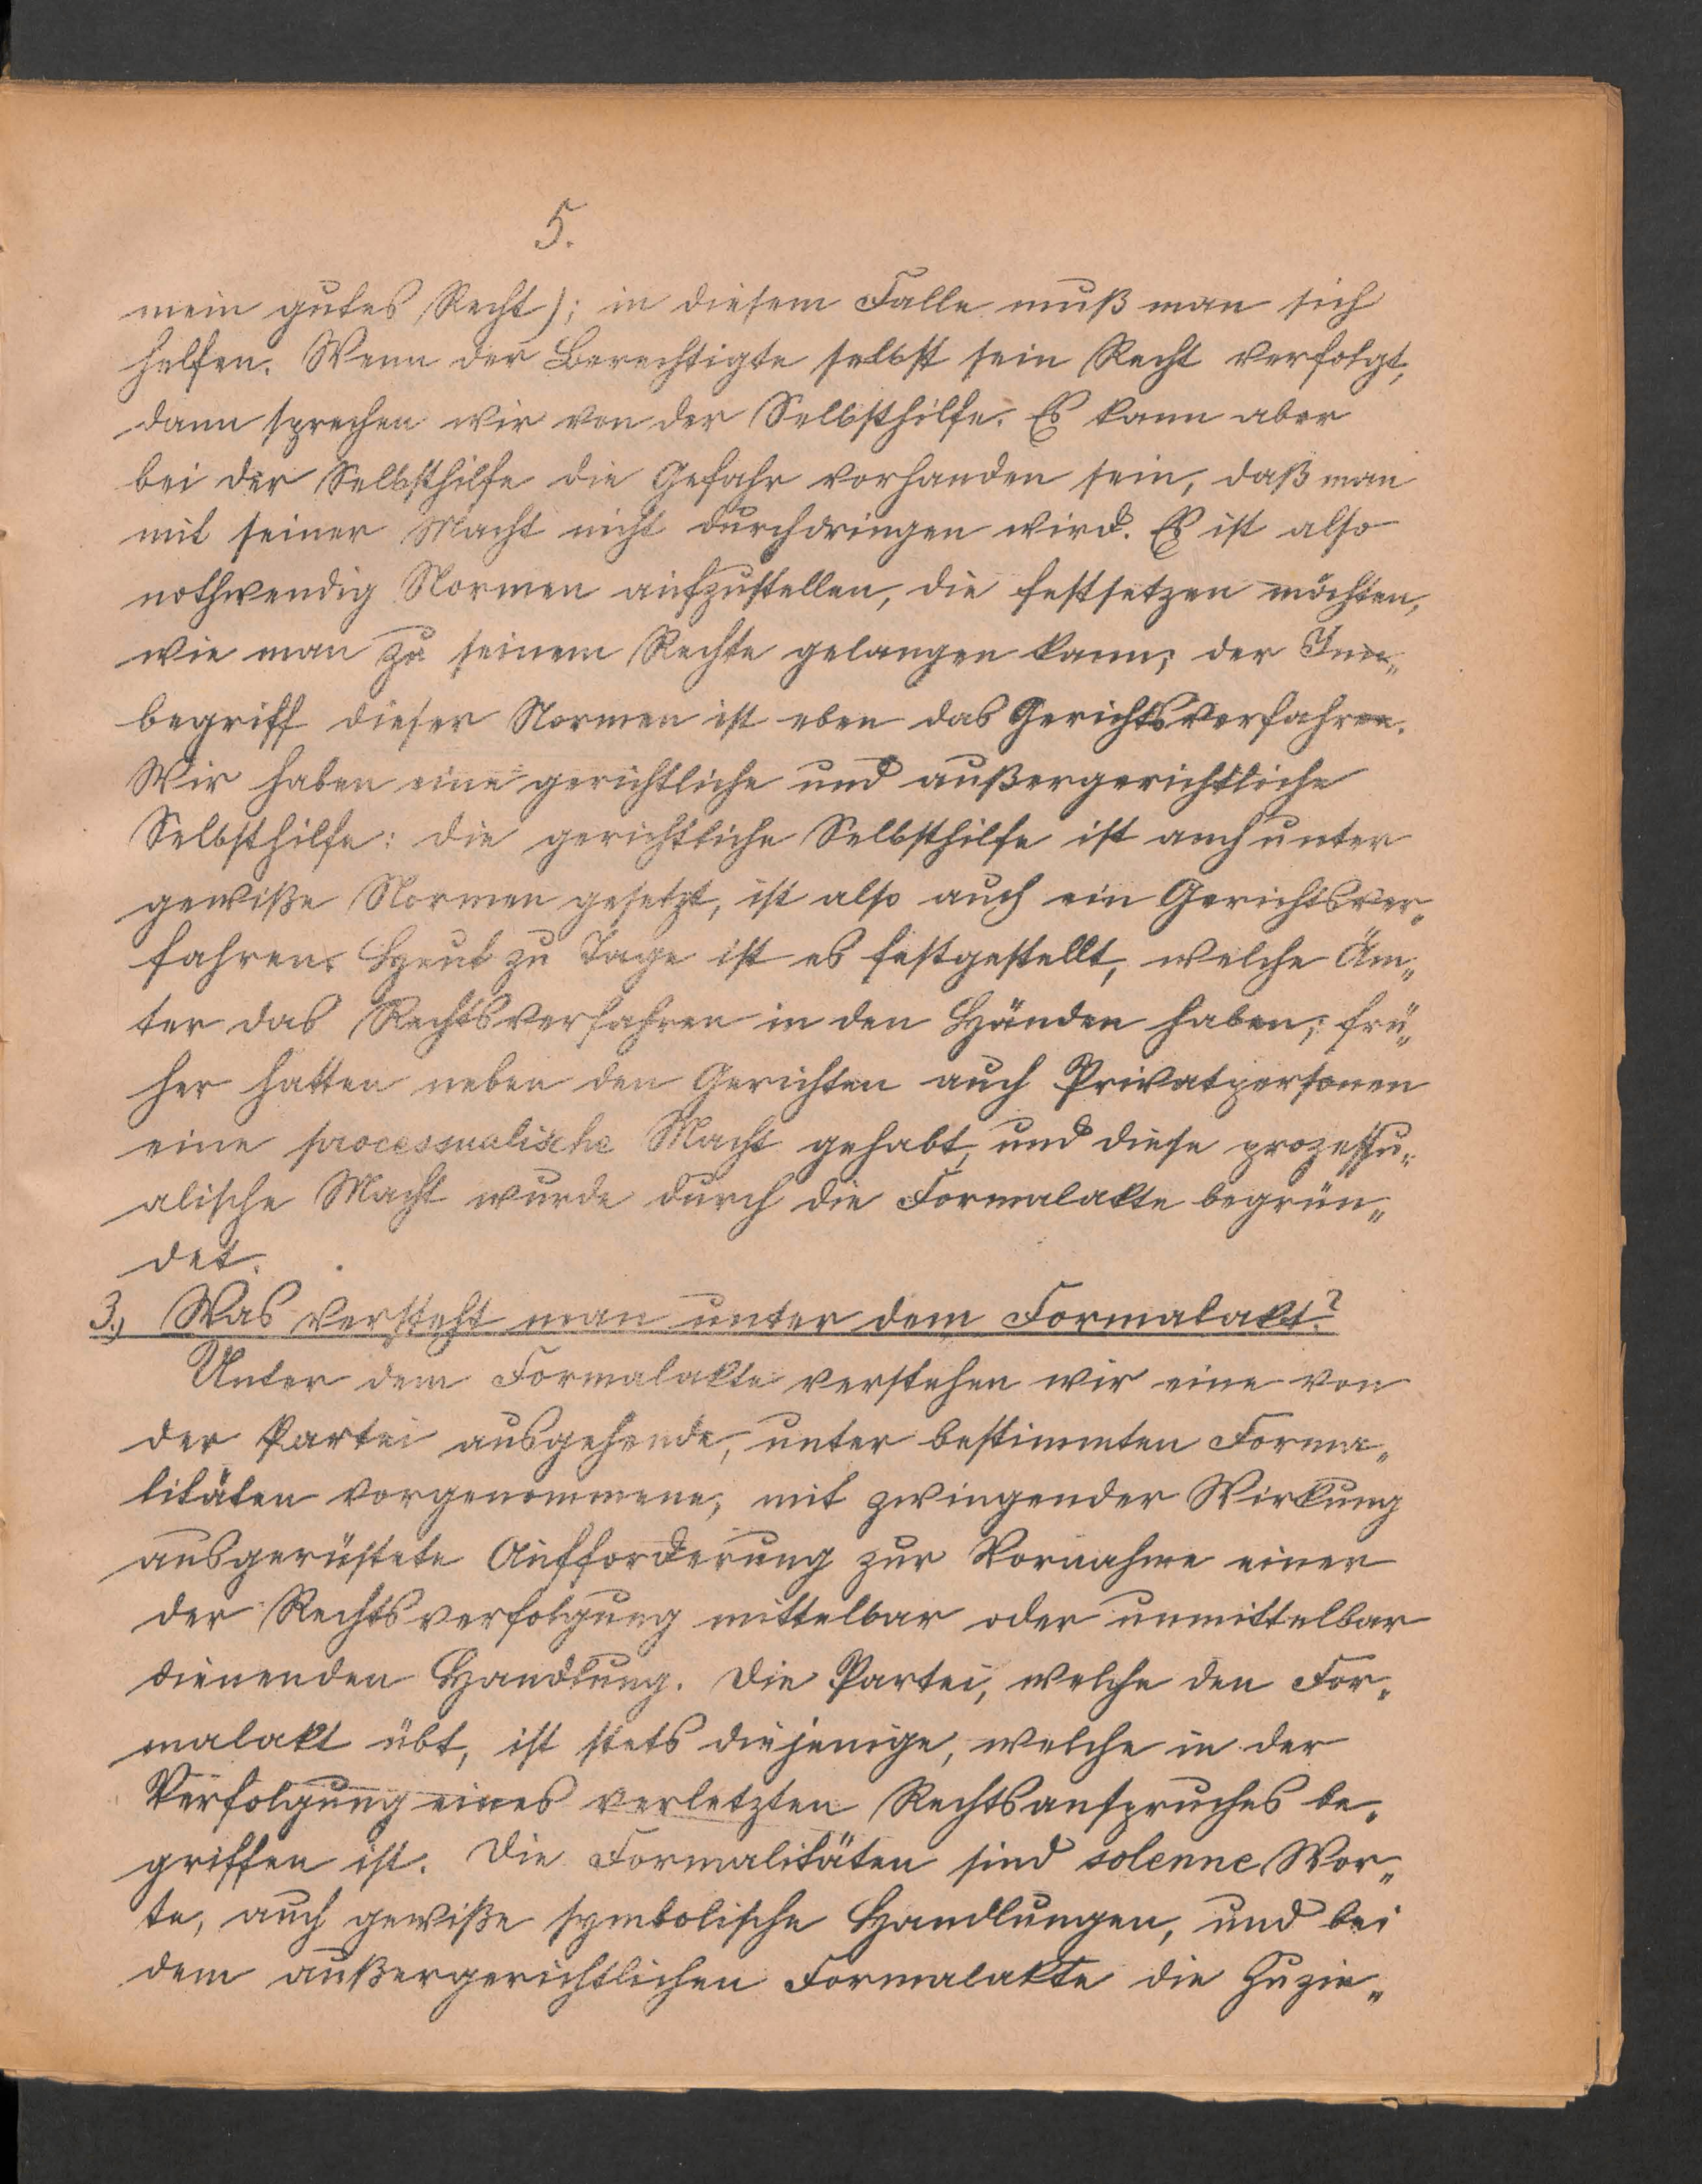 5.
mein gutes Recht); in diesem Falle muß man sich
helfen. Wenn der Berechtigte selbst sein Recht verfolgt,
dann sprechen wir von der Selbsthilfe. Es kann aber
bei der Selbsthilfe die Gefahr vorhanden sein, daß man
mit seiner Macht nicht durchdringen wird. Es ist also
nothwendig Normen aufzustellen, die festsetzen möchten,
wie man zu seinem Rechte gelangen kann; der Inn„
begriff dieser Normen ist eben das Gerichtsverfahren.
Wir haben eine gerichtliche und außergerichtliche
Selbsthilfe: die gerichtliche Selbsthilfe ist auch unter
gewiße Normen gesetzt, ist also auch ein Gerichtsver„
fahren. Heut zu Tage ist es festgestellt, welche Äm„
ter das Rechtsverfahren in den Händen haben; frü„
her hatten neben den Gerichten auch Privatpersonen
eine processualische Macht gehabt, und diese prozessu„
alische Macht wurde durch die Formalakte begrün„
det.
3., Was versteht man unter dem Formalakt?
Unter dem Formalakte verstehen wir eine von
der Partei ausgehende, unter bestimmten Forma„
litäten vorgenommene, mit zwingender Wirkung
ausgerüstete Aufforderung zur Vornahme einer
der Rechtsverfolgung mittelbar oder unmittelbar
dienenden Handlung. Die Partei, welche den For„
malakt übt, ist stets diejenige, welche in der
Verfolgung eines verletzten Rechtsanspruches be„
griffen ist. Die Formalitäten sind solenne Wor„
te, auch gewiße symbolische Handlungen, und bei
dem außergerichtlichen Formalakte die Zuzie„